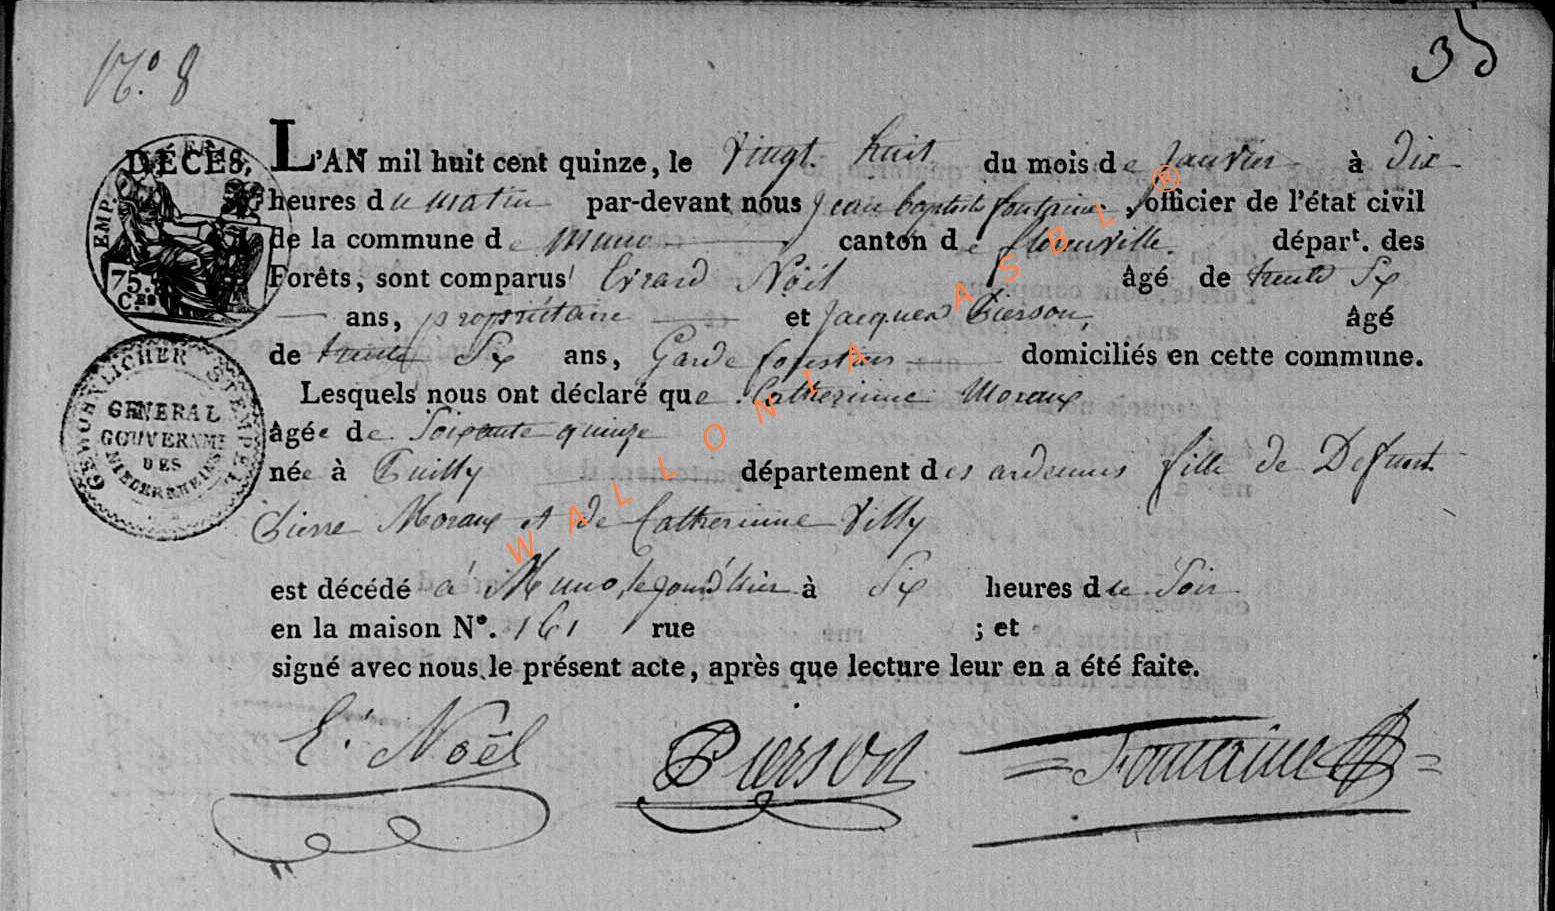 N.° 8
35
DÉCÈS, L'AN mil huit cent quinze, le vingt huit du mois de Janvier à dix
heures du matin par-devant nous Jean baptiste fontaine, officier de l'état civil
de la commune de Muno canton de florenville dépar<sup>t</sup>. des
Forêts, sont comparus Evrard Nöel âgé de trente Six
ans, propriétaire et Jacques Pierson, âgé
de trente Six ans, Garde forestier domiciliés en cette commune.
Lesquels nous ont déclaré que Catherinne Moraux
âgée de Soixante quinze
née à Puilly département des ardennes fille de Defunt
Pierre Moraux et de Catherinne Villy
est décédé à Muno, le jour d'hier à Six heures du Soir
en la maison N°. 161 rue ; et
signé avec nous le présent acte, après que lecture leur en a été faite.
E. Noël Pierson Fontaine
EMP. FR
75.
C.ES
GEWŒHNLICHER STEMPEL
GENERAL
GOUVERNMT
DES
NIEDERRHEINS
WALLONIA ASBL ®